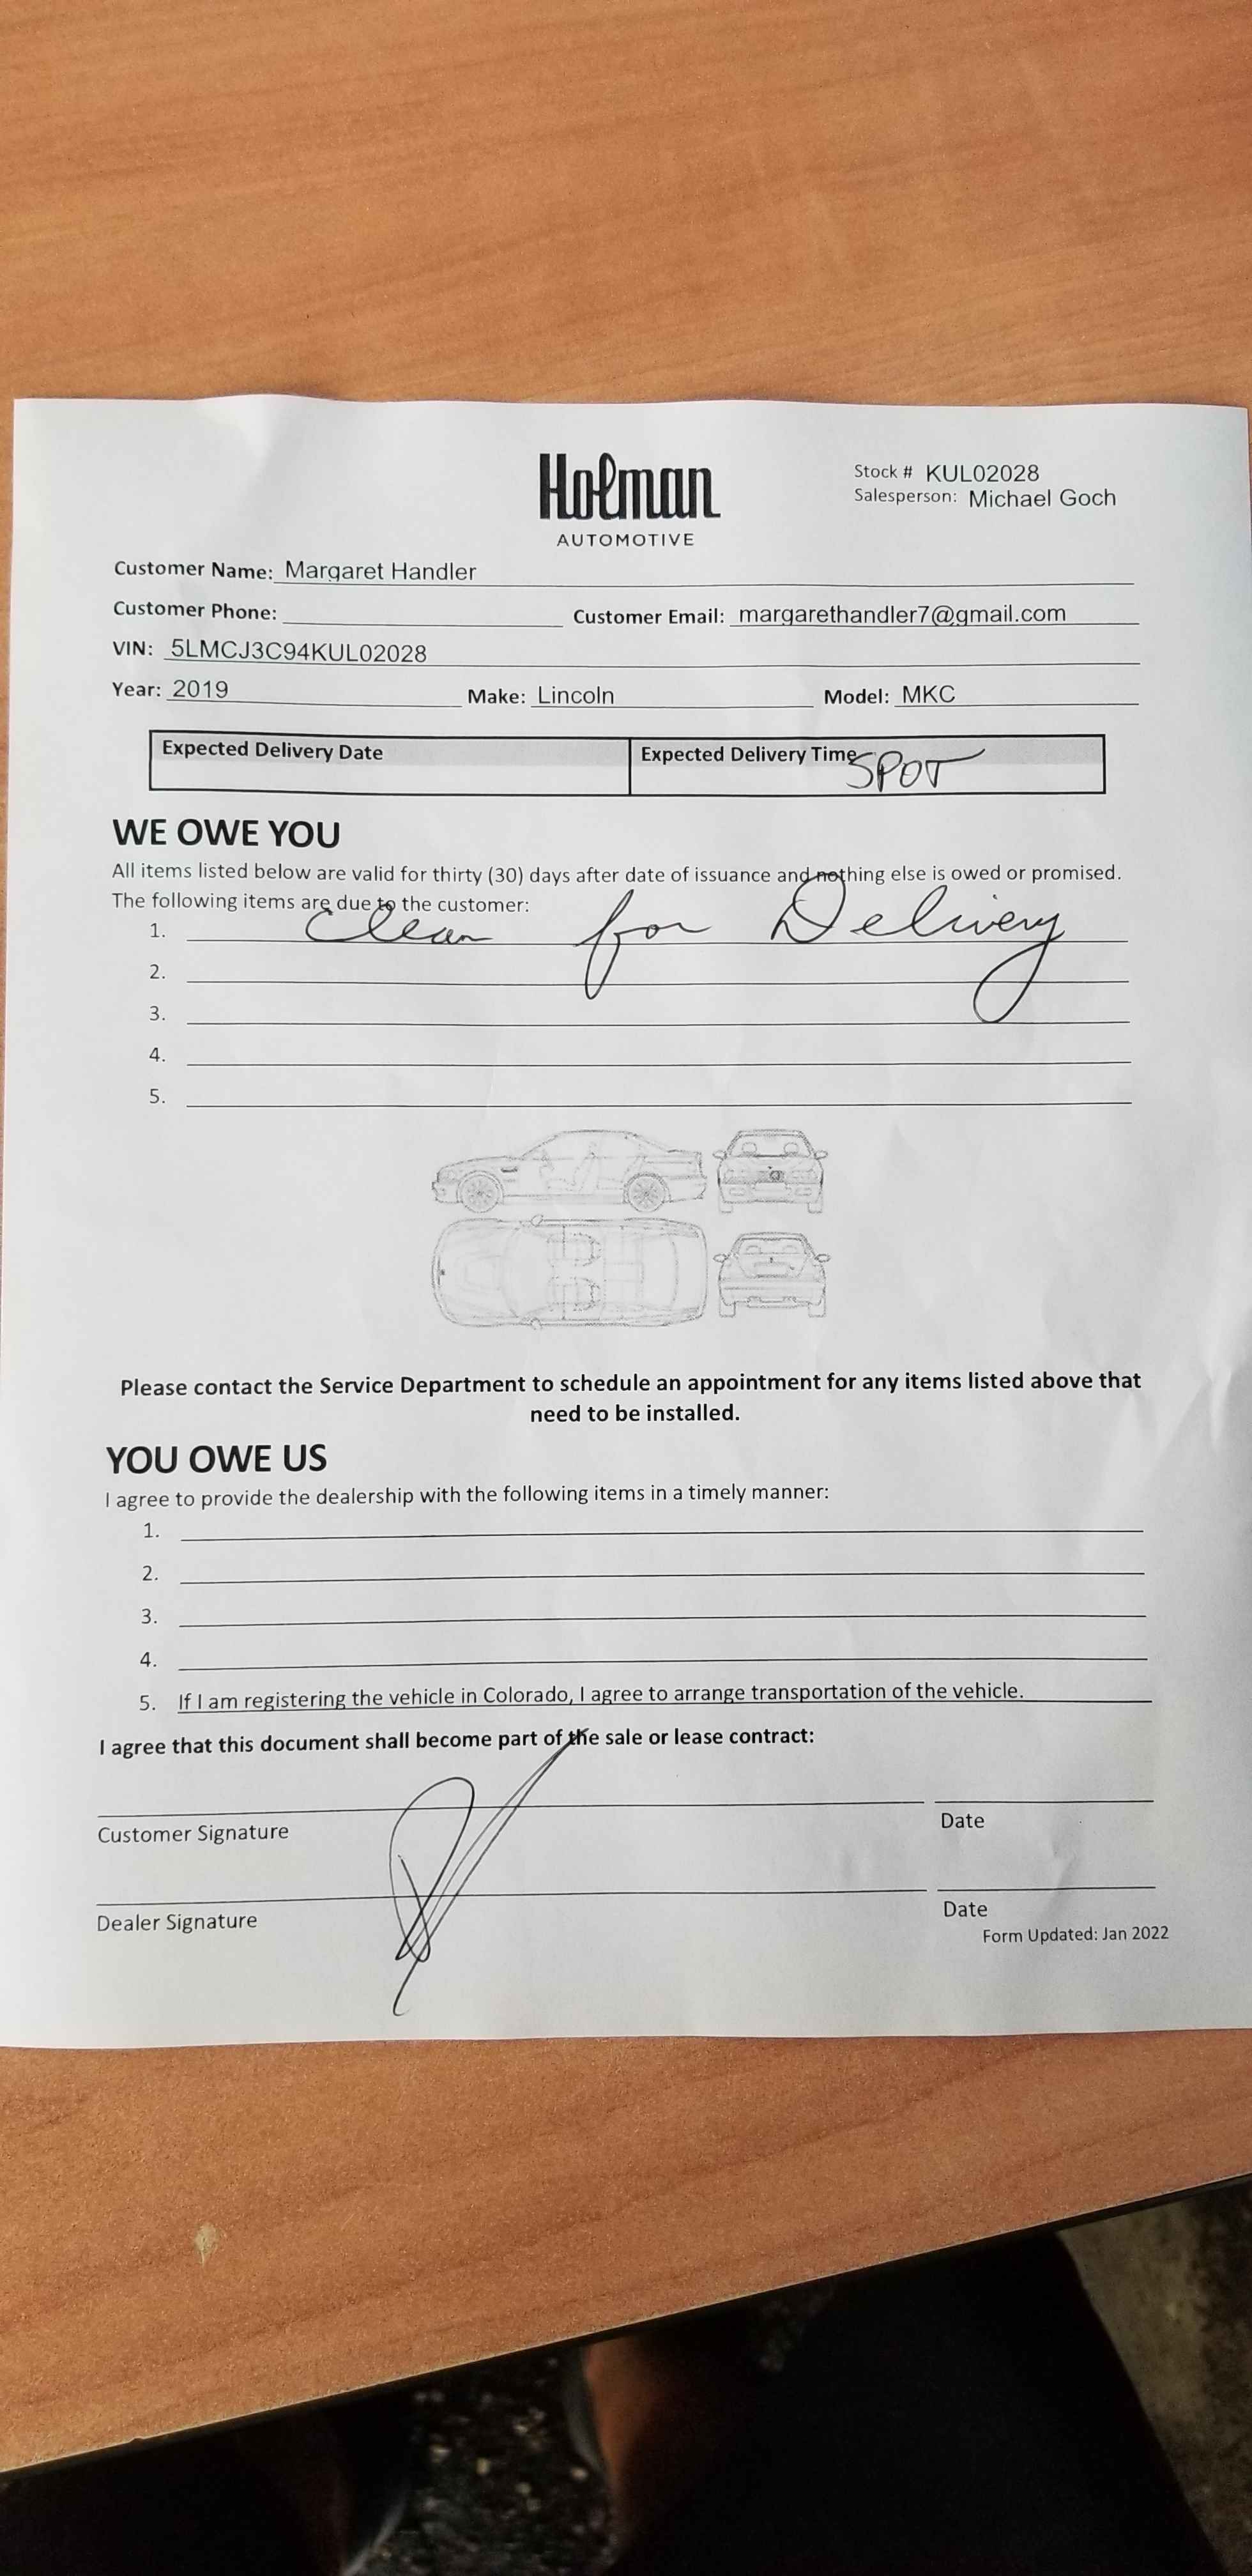 Holman
AUTOMOTIVE
Stock # KUL02028
Salesperson: Michael Goch
Customer Name: Margaret Handler
Customer Phone: Customer Email: margarethandler7@gmail.com
VIN: 5LMCJ3C94KUL02028
Year: 2019 Make: Lincoln Model: MKC
Expected Delivery Date Expected Delivery Time SPOT
WE OWE YOU
All items listed below are valid for thirty (30) days after date of issuance and nothing else is owed or promised.
The following items are due to the customer:
1. Clean for Delivery
2.
3.
4.
5.
Please contact the Service Department to schedule an appointment for any items listed above that
need to be installed.
YOU OWE US
I agree to provide the dealership with the following items in a timely manner:
1.
2.
3.
4.
5. If I am registering the vehicle in Colorado, I agree to arrange transportation of the vehicle.
I agree that this document shall become part of the sale or lease contract:
Customer Signature Date
Dealer Signature Date
Form Updated: Jan 2022